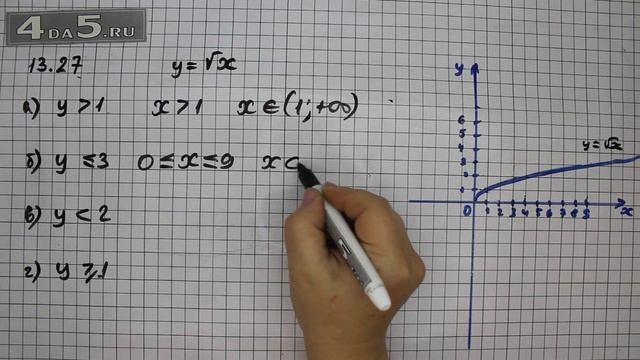 4DA5.RU
13.27 y=√x
а) y>1 x>1 x∈(1;+∞)
б) y≤3 0≤x≤9 x
в) y<2
г) y≥1
y
6
5
4
3
2
1
0 1 2 3 4 5 6 7 8 9 x
y=√x